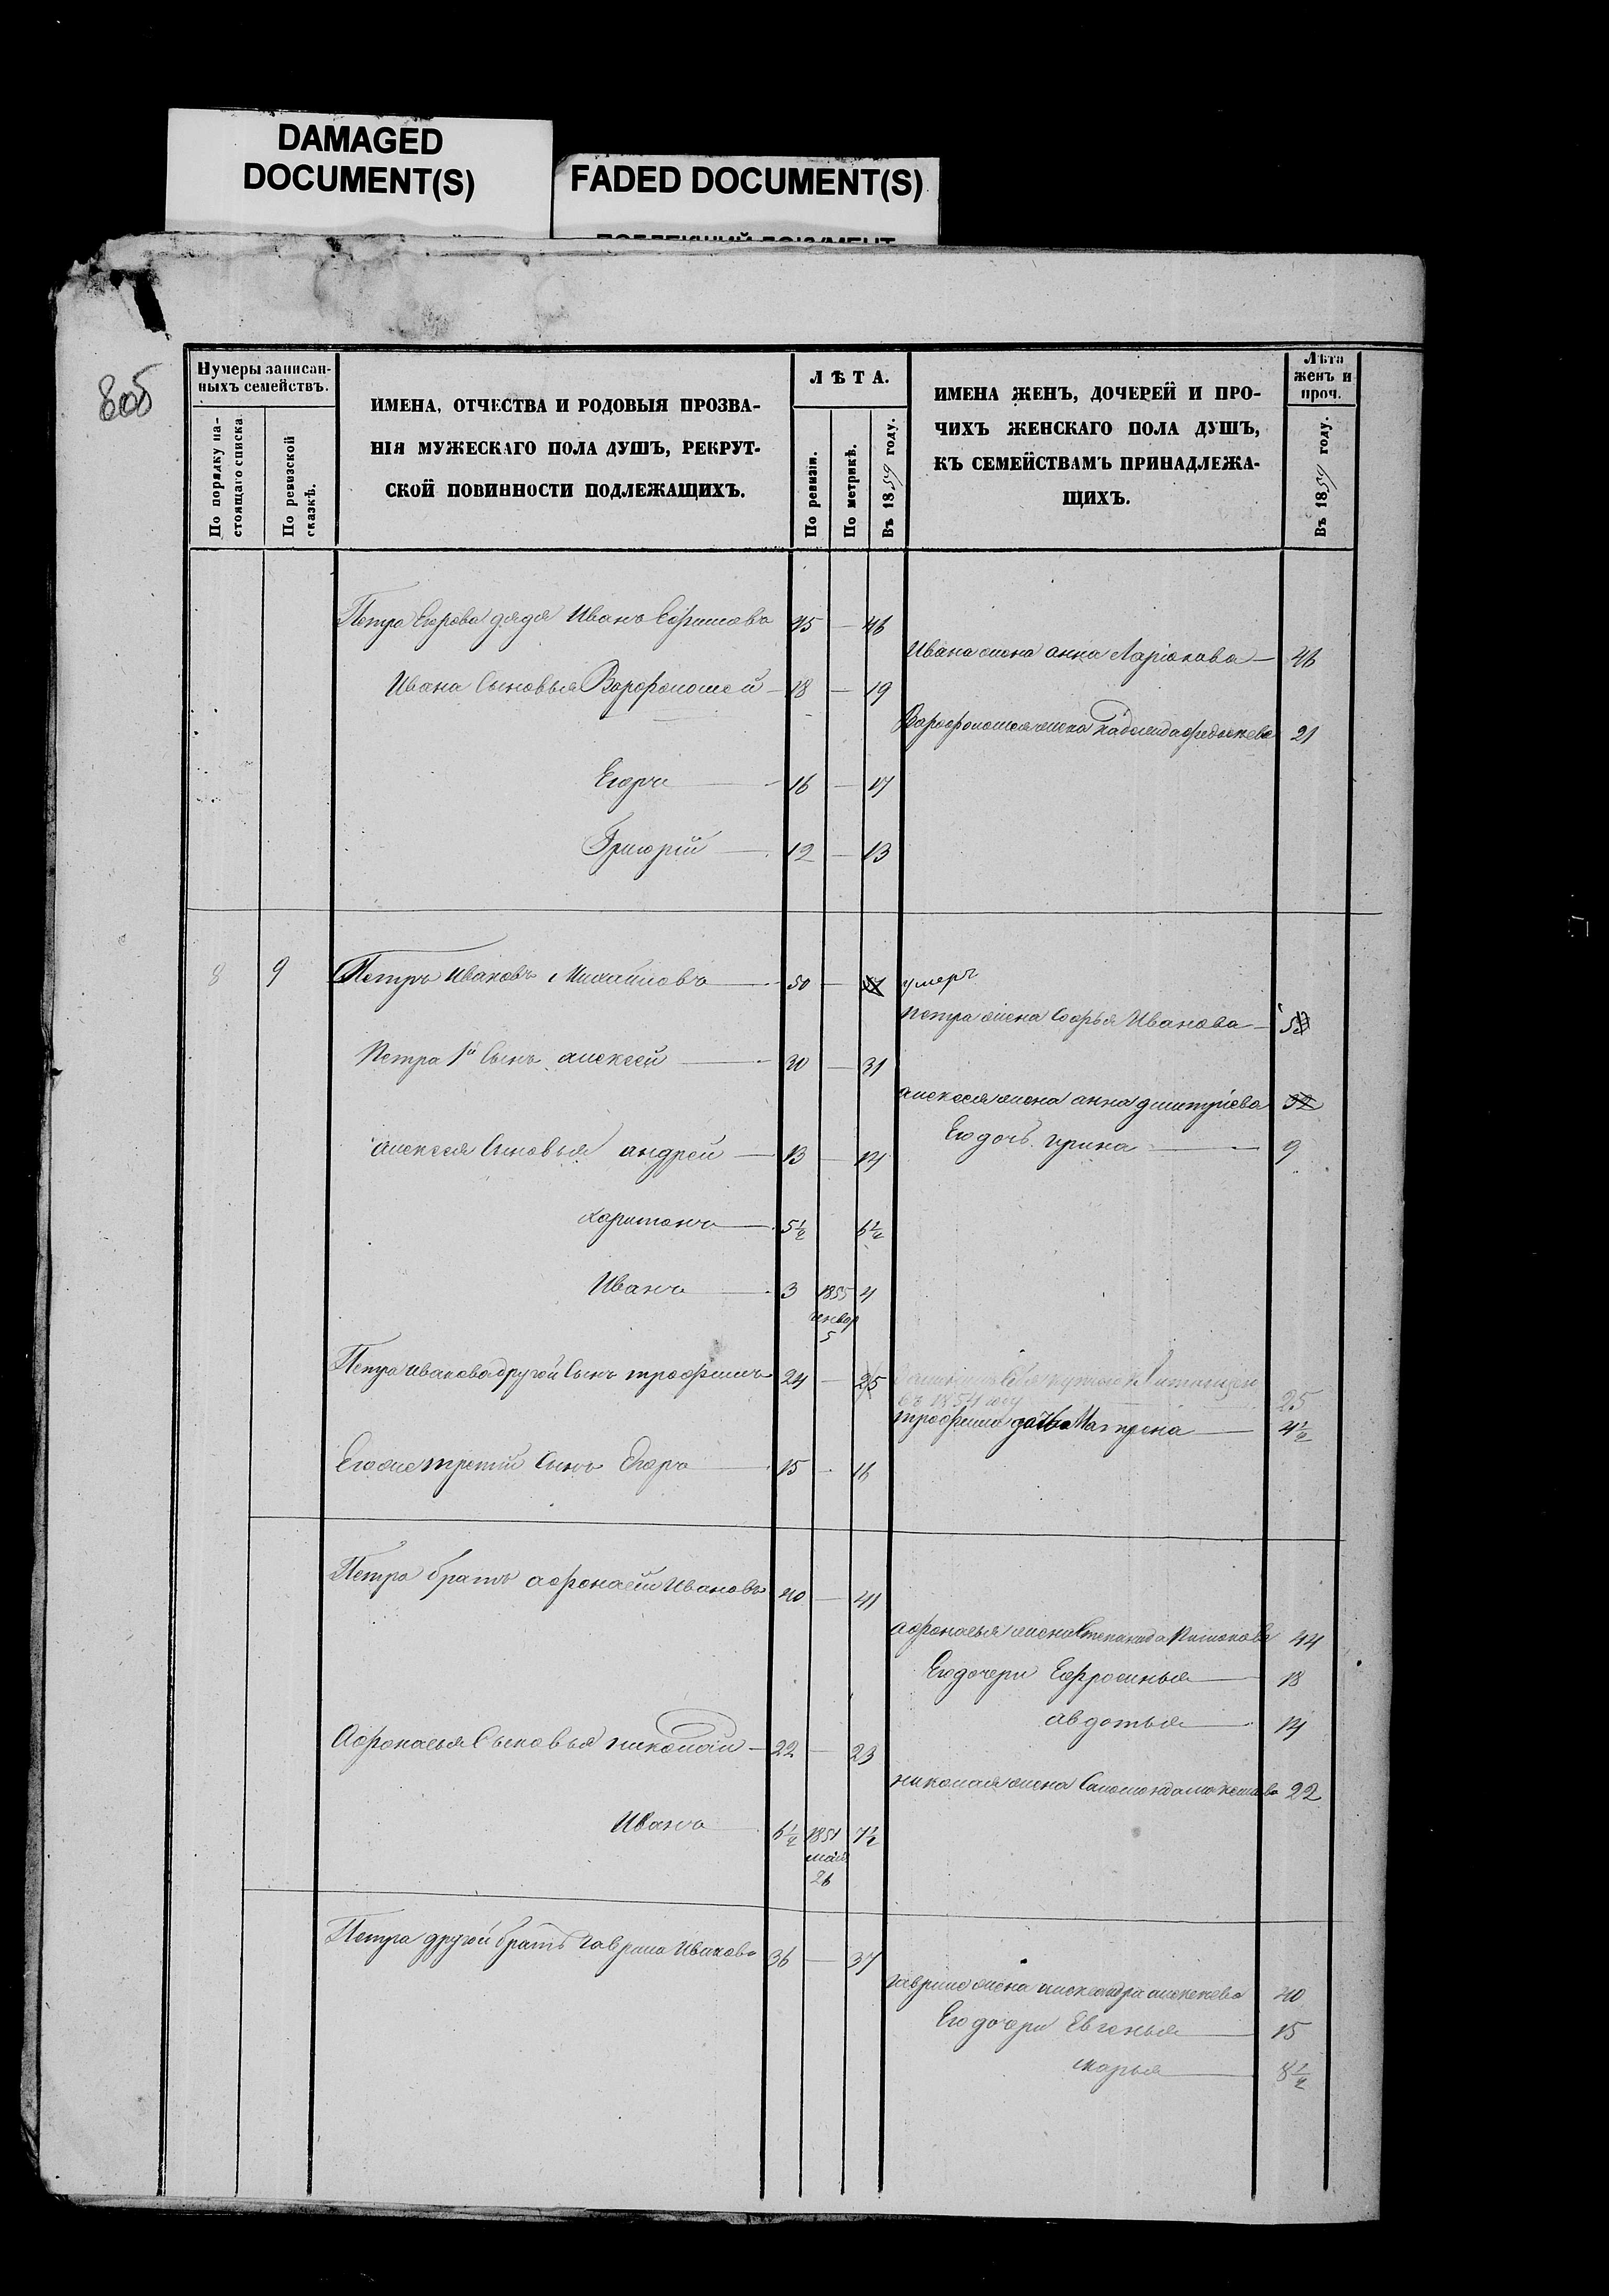 DAMAGED
DOCUMENT(S)
FADED DOCUMENT(S)
805
Нумеры записан-
ныхъ семействъ.
По порядку на-
стоящаго списка
По ревизской
сказкѣ.
ИМЕНА, ОТЧЕСТВА И РОДОВЫЯ ПРОЗВА-
НІЯ МУЖЕСКАГО ПОЛА ДУШЪ, РЕКРУТ-
СКОЙ ПОВИННОСТИ ПОДЛЕЖАЩИХЪ.
ЛѢТА.
По ревизіи.
По метрикѣ.
Въ 1859 году.
ИМЕНА ЖЕНЪ, ДОЧЕРЕЙ И ПРО-
ЧИХЪ ЖЕНСКАГО ПОЛА ДУШЪ,
КЪ СЕМЕЙСТВАМЪ ПРИНАДЛЕЖА-
ЩИХЪ.
Лѣта
женъ и
проч.
Въ 1859 году.
Петра Егорова дядя Иванъ Ефимовъ 45 — 46
Ивана жена анна Ларіонова — 46
Ивана Сыновья Варфоломей — 18 — 19
Варфоломея жена 21
Егоръ — 16 — 17
Григорій — 12 — 13
8 9 Петръ Ивановъ Михайловъ — 50 — 51 умеръ
Петра жена Софья Иванова — 53
Петра 1й Сынъ алексей — 30 — 31
алексея жена анна дмитріева 32
Его дочь ирина — 9
алексея Сыновья андрей — 13 — 14
Харитонъ — 5½ 6½
Иванъ — 3 1855 4
генвар
5
Петра Иванова другой Сынъ трофимъ 24 — 25
въ 1854 году 25
трофима дочь Матрена — 4½
Егоже третій Сынъ Егоръ — 15 — 16
Петра братъ афонасей Ивановъ 40 — 41
афонасья жена Степанида 44
Его дочери Ефросинья — 18
авдотья — 14
Афонасья Сыновья николай — 22 — 23
николая жена 22
Иванъ 6½ 1851 7½
май
26
Петра другой братъ гаврила Ивановъ 36 — 37
гаврилы жена александра алексеева 40
Его дочери Евгенья — 15
марья — 8½